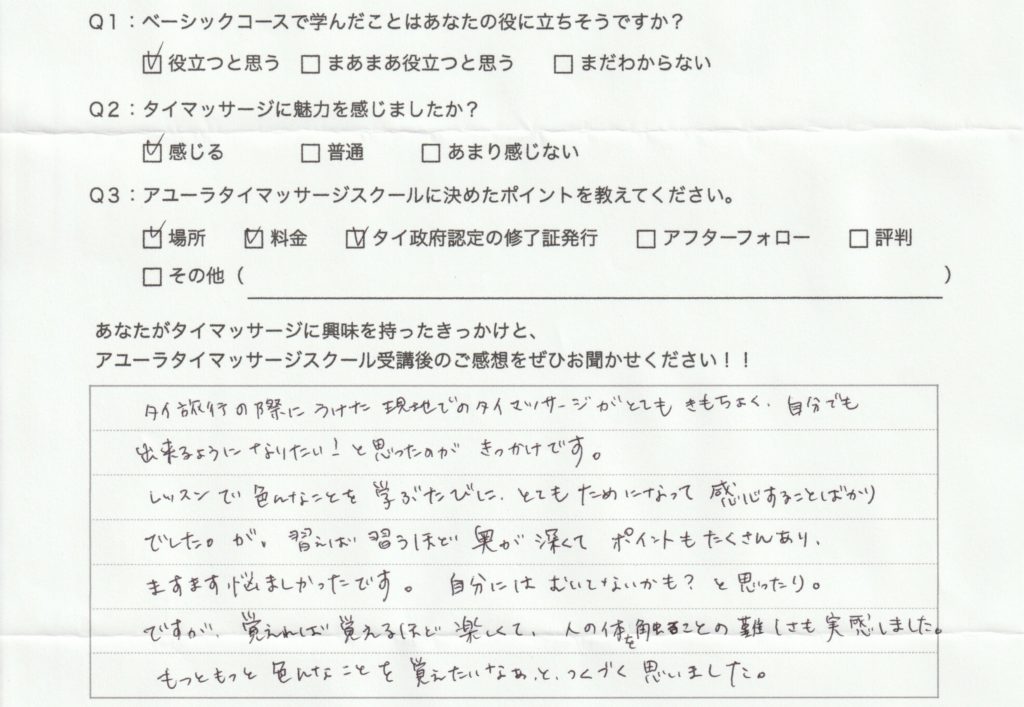 Q1：ベーシックコースで学んだことはあなたの役に立ちそうですか？
役立つと思う まあまあ役立つと思う まだわからない
Q2：タイマッサージに魅力を感じましたか？
感じる 普通 あまり感じない
Q3：アユーラタイマッサージスクールに決めたポイントを教えてください。
場所 料金 タイ政府認定の修了証発行 アフターフォロー 評判
その他（ ）
あなたがタイマッサージに興味を持ったきっかけと、
アユーラタイマッサージスクール受講後のご感想をぜひお聞かせください！！
タイ旅行の際にうけた現地でのタイマッサージがとてもきもちよく、自分でも
出来るようになりたい！と思ったのがきっかけです。
レッスンで色んなことを学ぶたびに、とてもためになって感心することばかり
でした。が。習えば習うほど奥が深くてポイントもたくさんあり、
ますます悩ましかったです。自分にはむいてないかも？と思ったり。
ですが、覚えれば覚えるほど楽しくて、人の体を触ることの難しさも実感しました。
もっともっと色んなことを覚えたいなぁ、と、つくづく思いました。